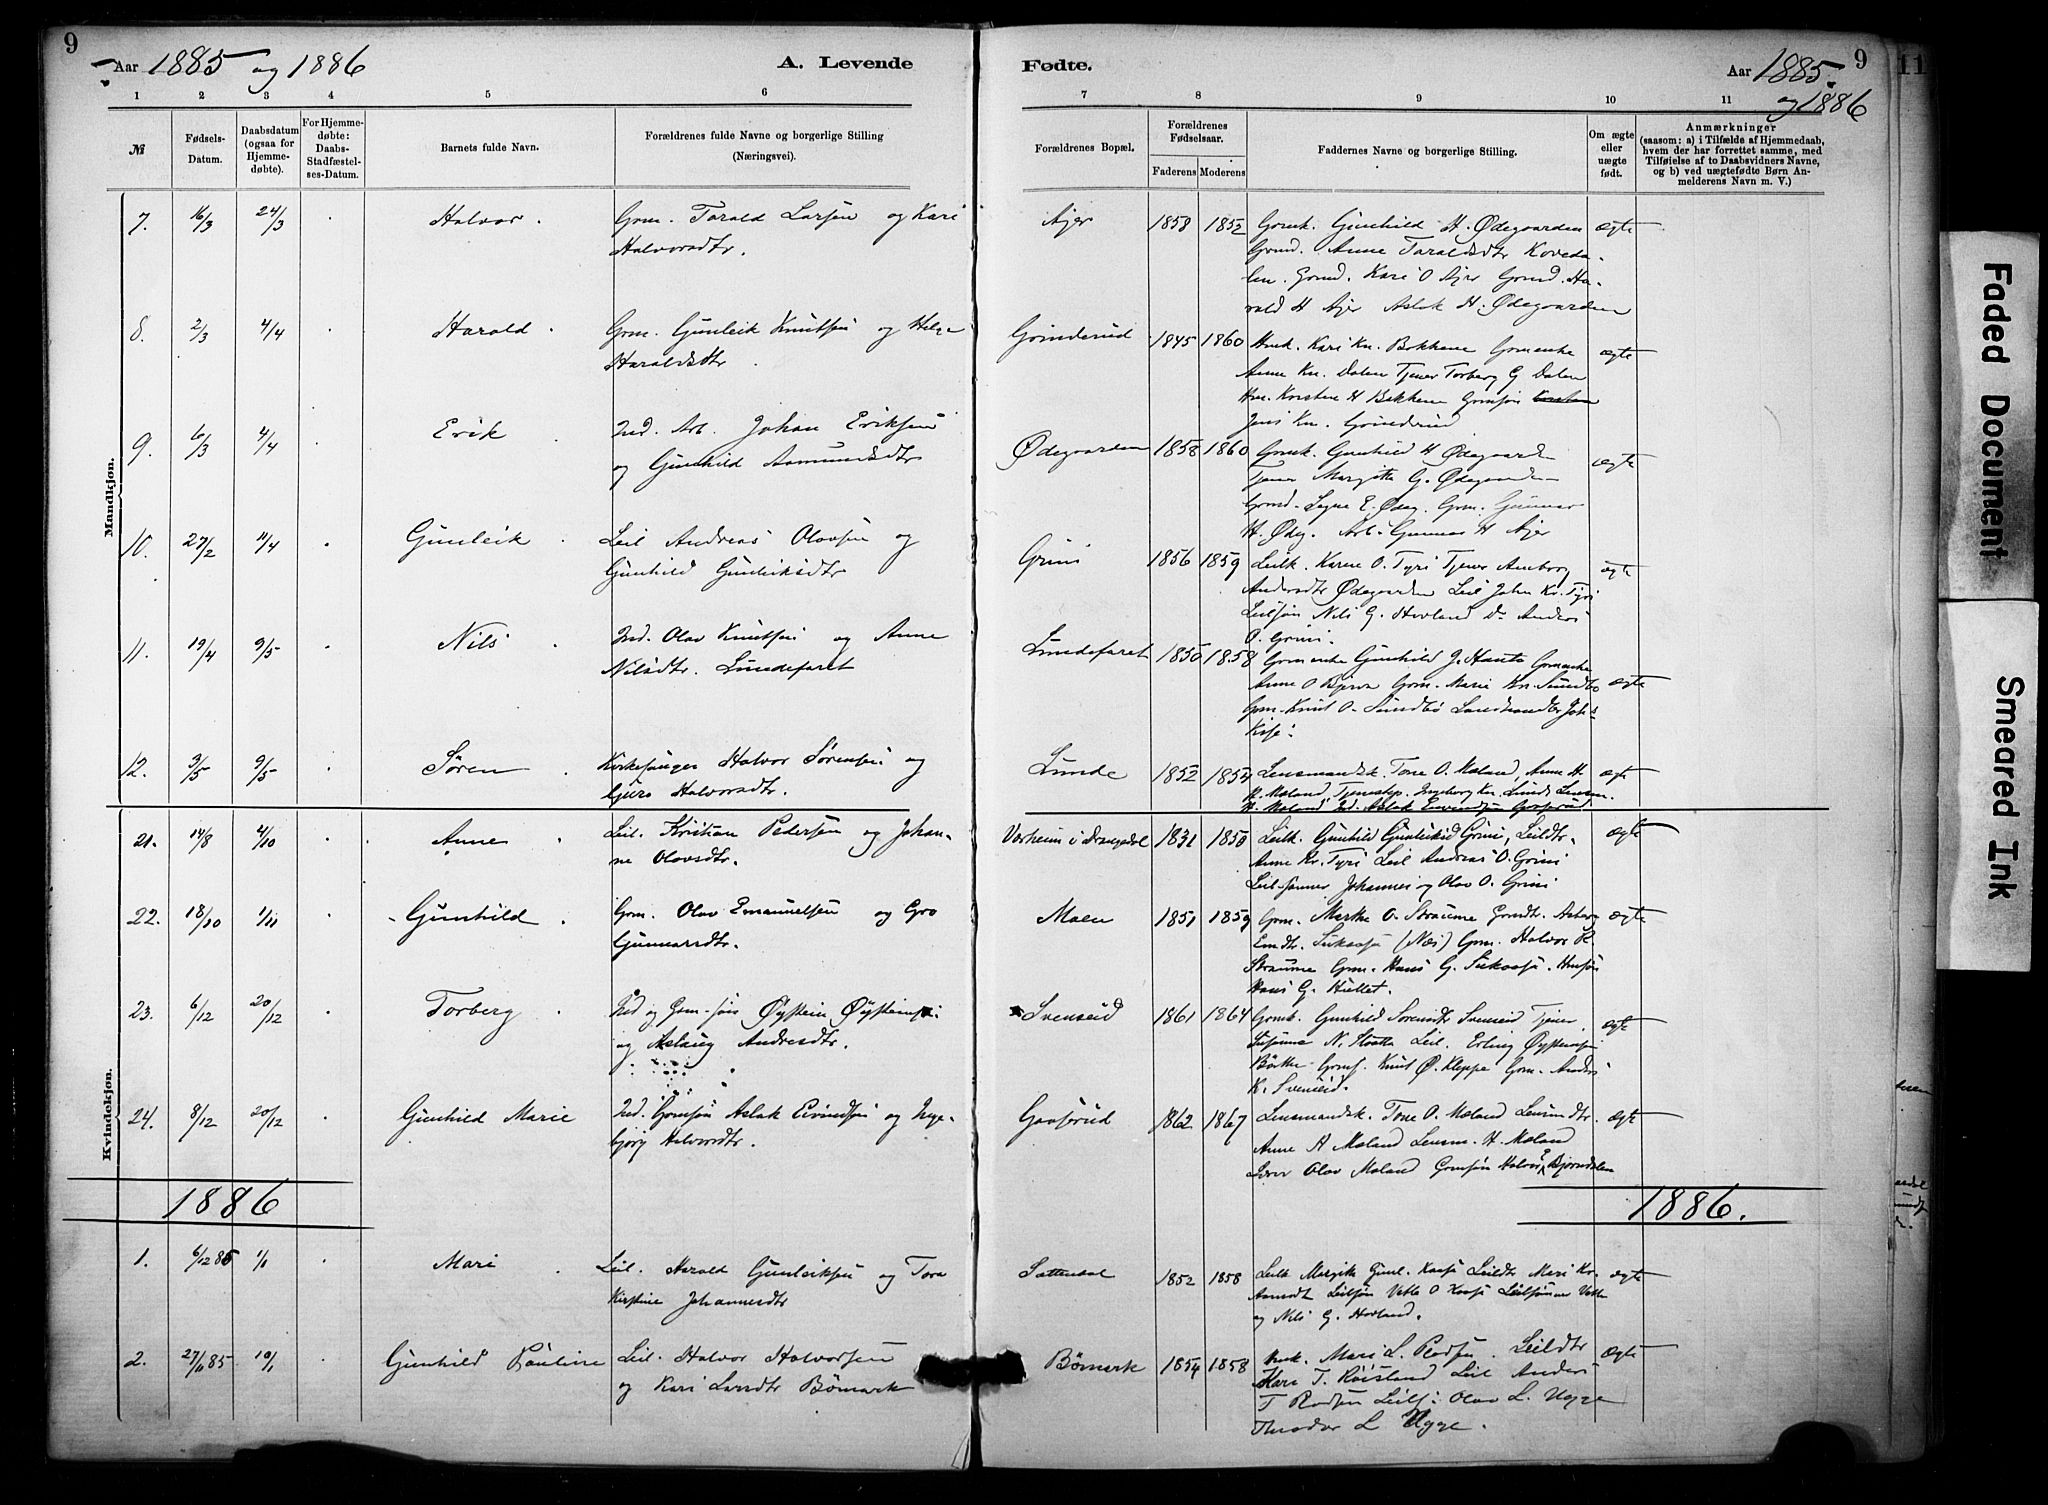 9
Aar 1885 og 1886
A. Levende
Fødte.
Aar 1885.
og 1886
9
11
1 2 3 4 5 6 7 8 9 10 11
№
Fødsels-
Datum.
Daabsdatum
(ogsaa for
Hjemme-
døbte).
For Hjemme-
døbte:
Daabs-
Stadfæstel-
ses-Datum.
Barnets fulde Navn.
Forældrenes fulde Navne og borgerlige Stilling
(Næringsvei).
Forældrenes Bopæl.
Forældrenes
Fødselsaar.
Faderens Moderens
Faddernes Navne og borgerlige Stilling.
Om ægte
eller
uægte
født.
Anmærkninger
(saasom: a) i Tilfælde af Hjemmedaab,
hvem der har forrettet samme, med
Tilføielse af to Daabsvidners Navne,
og b) ved uægtefødte Børn An-
melderens Navn m. V.)
Mandkjøn.
7. 16/3 24/3 Halvor. Grm. Tarald Larsen og Kari
Halvorsdtr.
Ajer 1858 1852 Grmk. Gunhild H. Ødegaarden ægte
Grmd. Anne Taraldsdtr Koveda-
len. Grmd. Kari O Ajer Grmd. Ha-
rald H Ajer Aslak H. Ødegaarden
8. 2/3 4/4 Harald. Grm. Gunleik Knutsen og Helge
Haraldsdtr
Grinderud 1845 1860 Hmk. Kari Kn. Bakkene Grmenke ægte
Anne Kn. Dalen Tjener Torberg G Dalen
Hm. Kristen H Bakken Grmsøn
Jens Kn. Grinderud
9. 6/3 4/4 Erik Ind. Arb. Johan Eriksen
og Gunhild Aamundsdtr
Ødegaarden 1858 1860 Grmk. Gunhild H Ødegaarden ægte
Tjener Margitte G. Ødegaarden
Grmd. Signe E. Ødeg. Grm. Gunnar
H. Ødg. Arb. Gunnar H Ajer
10. 27/2 11/4 Gunleik Leil Andreas Olavsen og
Gunhild Gunleiksdtr
Grini 1856 1859 Leilk. Karen O. Tyri Tjener Amborg ægte
Andersdtr Ødegaarden Leil John Kr. Tyri
Leilsøn Nils G. Hovland Do Anders
O. Grini.
11. 19/4 9/5 Nils Ind. Olav Knutsen og Anne
Nilsdtr. Lundefaret
Lundefaret 1850 1858 Grmenke Gunhild J. Hauta Grmenke
Anne O Bjerva Grm. Marie Kn. Sundbø ægte
Grm. Knut O. Sundbø Landhandler Joh.
12. 3/5 9/5 Søren Kirkesanger Halvor Sørensen og
Gjero Halvorsdtr.
Lunde 1852 1854 Lensmandsk. Tone O. Mæland, Anne H. ægte
H. Mæland Tjenestep. Ingeborg Kn. Lunde Lensm.
H. Mæland Ind. Aslak Eivindsen Gaasrud
Kvindekjøn.
21. 14/8 4/10 Anne Leil. Kristian Pedersen og Johan-
ne Olavsdtr.
Værheim i Drangedal 1831 1850 Leilk. Gunhild Gunleiksd Grini, Leildtr. ægte
Anne Kr. Tyri Leil Andreas O. Grini
Leil-sønner Johannes og Olav O. Grini
22. 18/10 1/11 Gunhild Grm. Olav Emanuelsen og Gro
Gunnarsdtr.
Moen 1851 1859 Grm. Marthe O. Straume Grmdt. Asberg ægte
Emdtr. (Næs) Grm. Halvor R.
Straume Grm. Hans G. Hmsøn
Hans G. Hullet.
23. 6/12 20/12 Torberg Ind og Grm-søn Øystein Øysteinsen
og Aslaug Andersdtr.
Svenseid 1861 1864 Grmk. Gunhild Sorensdtr Svenseid Tjener ægte
Susanne N. Hootta Leil. Erling Øysteinsen
Grmf. Knut Ø. Kleppe Grm. Anders
K. Svenseid.
24. 8/12 20/12 Gunhild Marie Ind. Grmsøn Aslak Eivindsen og Inge-
bjørg Halvorsdtr.
Gaasrud 1862 1867 Lensmandsk. Tone O. Mæland Lensmdtr. ægte
Anne H Mæland Lensm. H. Mæland
Lærer Olav Mæland Grmsøn Halvor Bjorndalen
1886
1886.
1. 6/12 85 1/1 Mari Leil. Harald Gunleiksen og Tora
Kirstine Johannesdtr
Sættendal 1852 1858 Leilk Margitte Gunl. Kaasa Leildtr Mari Kr. ægte
Aamodt Leilsøn Vetle O Kaasa Leilsønner Vetle
og Nils G. Hovland.
2. 27/11 85 10/1 Gunhild Pauline Leil. Halvor Halvorsen
og Kari Larsdtr Bømark
Bømark 1854 1858 Hmk. Mari L. Rodsen. Leildtr ægte
Kari T. Røisland Leil Anders
T Rodsen Leils: Olav L. Ugge
Theodor L Ugge.
Faded Document
Smeared Ink